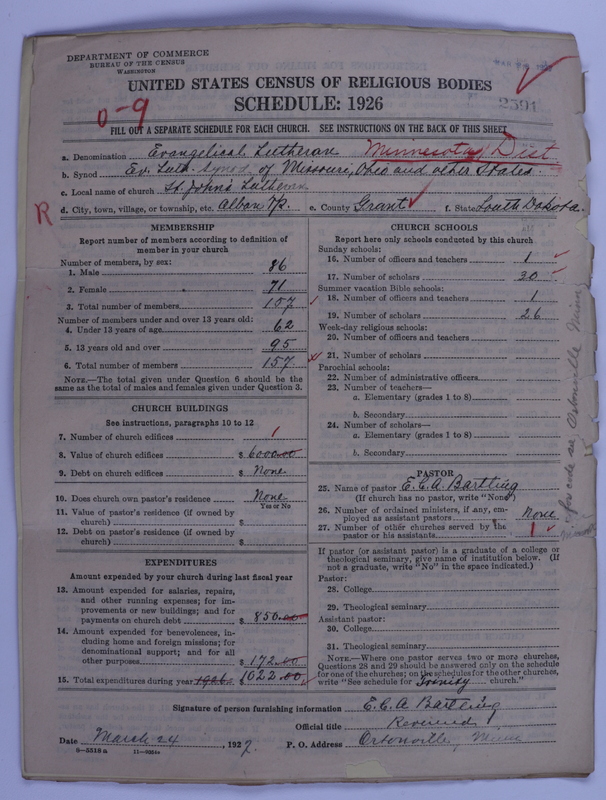 DEPARTMENT OF COMMERCE
BUREAU OF THE CENSUS
WASHINGTON
UNITED STATES CENSUS OF RELIGIOUS BODIES
SCHEDULE: 1926
0-9
2591
FILL OUT A SEPARATE SCHEDULE FOR EACH CHURCH. SEE INSTRUCTIONS ON THE BACK OF THIS SHEET
a. Denomination Evangelical Lutheran Minnesota Dist
b. Synod Ev. Luth. Synod of Missouri, Ohio and other States.
c. Local name of church St. John's Lutheran
R
d. City, town, village, or township, etc. Alban Tp. e. County Grant f. State South Dakota.
MEMBERSHIP
Report number of members according to definition of member in your church
Number of members, by sex:
1. Male 86
2. Female 71
3. Total number of members 157
Number of members under and over 13 years old:
4. Under 13 years of age 62
5. 13 years old and over 95
6. Total number of members 157
NOTE.—The total given under Question 6 should be the same as the total of males and females given under Question 3.
CHURCH BUILDINGS
See instructions, paragraphs 10 to 12
7. Number of church edifices 1
8. Value of church edifices $ 6000.00
9. Debt on church edifices $ None
10. Does church own pastor's residence None
Yes or No
11. Value of pastor's residence (if owned by church) $
12. Debt on pastor's residence (if owned by church) $
EXPENDITURES
Amount expended by your church during last fiscal year
13. Amount expended for salaries, repairs, and other running expenses; for improvements or new buildings; and for payments on church debt $ 850.00
14. Amount expended for benevolences, including home and foreign missions; for denominational support; and for all other purposes $ 172.00
15. Total expenditures during year 1926 $ 1022.00
CHURCH SCHOOLS
Report here only schools conducted by this church
Sunday schools:
16. Number of officers and teachers 1
17. Number of scholars 20
Summer vacation Bible schools:
18. Number of officers and teachers 1
19. Number of scholars 26
Week-day religious schools:
20. Number of officers and teachers
21. Number of scholars
Parochial schools:
22. Number of administrative officers
23. Number of teachers—
a. Elementary (grades 1 to 8)
b. Secondary
24. Number of scholars—
a. Elementary (grades 1 to 8)
b. Secondary
PASTOR
25. Name of pastor E.C.A Bartling
(If church has no pastor, write "None")
26. Number of ordained ministers, if any, employed as assistant pastors None
27. Number of other churches served by the pastor or his assistants 1
If pastor (or assistant pastor) is a graduate of a college or theological seminary, give name of institution below. (If not a graduate, write "No" in the space indicated.)
Pastor:
28. College
29. Theological seminary
Assistant pastor:
30. College
31. Theological seminary
NOTE.—Where one pastor serves two or more churches, Questions 28 and 29 should be answered only on the schedule for one of the churches; on the schedules for the other churches, write "See schedule for Trinity church."
Signature of person furnishing information E.C.A Bartling
Official title Reverend
Date March 24, 1927. P. O. Address Ortonville, Minn
8-5518a 11-9054